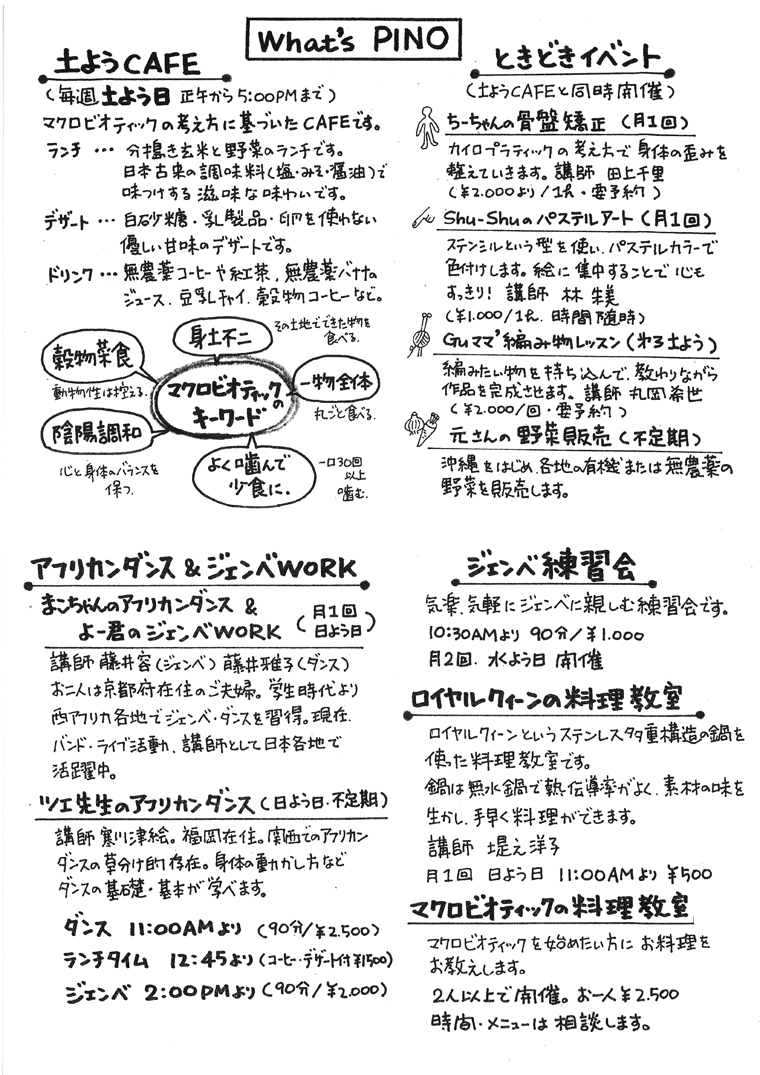 What's PINO
土ようCAFE
(毎週土よう日 正午から5:00PMまで)
マクロビオティックの考え方に基づいたCAFEです。
ランチ … 分搗き玄米と野菜のランチです。
日本古来の調味料(塩・みそ・醤油)で
味つけする滋味な味わいです。
デザート … 白砂糖・乳製品・卵を使わない
優しい甘味のデザートです。
ドリンク … 無農薬コーヒーや紅茶、無農薬バナナの
ジュース、豆乳チャイ、穀物コーヒーなど。
マクロビオティックの
キーワード
身土不二
その土地でできた物を
食べる。
穀物菜食
動物性は控える。
一物全体
丸ごと食べる。
陰陽調和
心と身体のバランスを
保つ。
よく噛んで
少食に.
一口30回
以上
噛む。
ときどきイベント
(土ようCAFEと同時開催)
ちーちゃんの骨盤矯正 (月1回)
カイロプラティックの考え方で身体の歪みを
整えていきます。講師 田上千里
(¥2.000より/1h・要予約)
Shu-Shuのパステルアート (月1回)
ステンシルという型を使い、パステルカラーで
色付けします。絵に集中することで心も
すっきり! 講師 林 朱美
(¥1.000/1h. 時間随時)
Guママ'編み物レッスン (第3土よう)
編みたい物を持ち込んで、教わりながら
作品を完成させます。講師 丸岡希世
(¥2.000/回・要予約)
元さんの野菜販売 (不定期)
沖縄をはじめ、各地の有機または無農薬の
野菜を販売します。
アフリカンダンス & ジェンベWORK
まこちゃんのアフリカンダンス &
よー君のジェンベWORK (月1回
日よう日)
講師 藤井容(ジェンベ) 藤井雅子(ダンス)
お二人は京都府在住のご夫婦。学生時代より
西アフリカ各地でジェンベ・ダンスを習得。現在、
バンド・ライブ活動、講師として日本各地で
活躍中。
ツエ先生のアフリカンダンス (日よう日・不定期)
講師 寒川津絵。福岡在住。関西でのアフリカン
ダンスの草分け的存在。身体の動かし方など
ダンスの基礎・基本が学べます。
ダンス 11:00AMより (90分/¥2.500)
ランチタイム 12:45より (コーヒー・デザート付¥1500)
ジェンベ 2:00PMより (90分/¥2.000)
ジェンベ練習会
気楽、気軽にジェンベに親しむ練習会です。
10:30AMより 90分/¥1.000
月2回. 水よう日 開催
ロイヤルクィーンの料理教室
ロイヤルクィーンというステンレス多重構造の鍋を
使った料理教室です。
鍋は無水鍋で熱伝導率がよく、素材の味を
生かし、手早く料理ができます。
講師 堤之洋子
月1回 日よう日 11:00AMより ¥500
マクロビオティックの料理教室
マクロビオティックを始めたい方にお料理を
お教えします。
2人以上で開催。お一人¥2.500
時間・メニューは相談します。